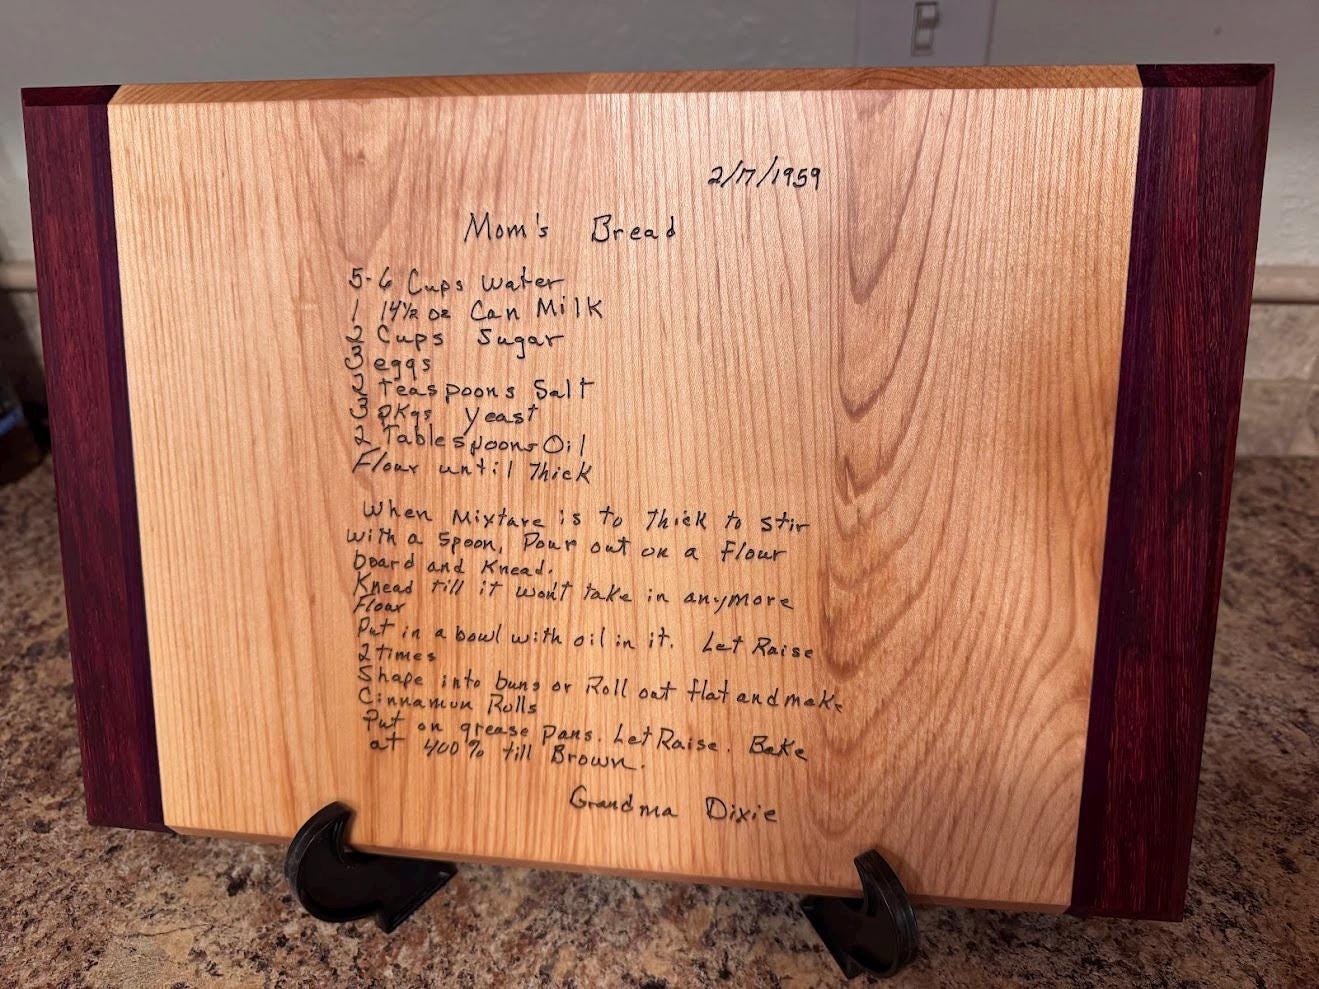 2/17/1959
Mom's Bread
5-6 Cups Water
1 14½ oz Can Milk
2 Cups Sugar
3 eggs
2 Teaspoons Salt
3 pkgs yeast
2 Tablespoons Oil
Flour until Thick
When Mixture is to Thick to Stir
with a Spoon, Pour out on a Flour
board and Knead.
Knead till it won't take in anymore
Flour
Put in a bowl with oil in it. Let Raise
2 times
Shape into buns or Roll out flat and make
Cinnamon Rolls
Put on grease Pans. Let Raise. Bake
at 400% till Brown.
Grandma Dixie